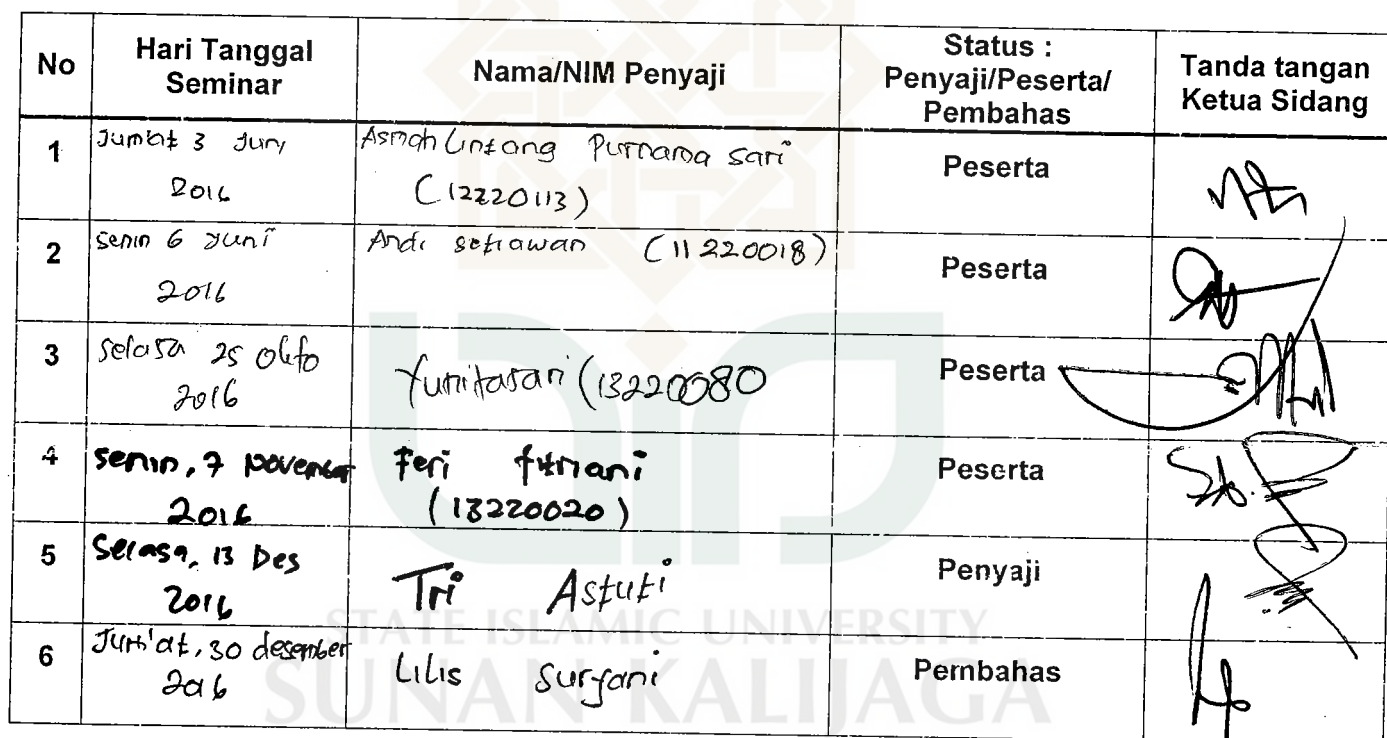 No Hari Tanggal Seminar Nama/NIM Penyaji Status : Penyaji/Peserta/Pembahas Tanda tangan Ketua Sidang
1 Jumat 3 Juni 2016 Asmah Lintang Purnama Sari (12220113) Peserta
2 Senin 6 Juni 2016 Andi Setiawan (11220018) Peserta
3 Selasa 25 Okto 2016 Yunitasari (13220080 Peserta
4 Senin, 7 November 2016 Feri Fitriani (13220020) Peserta
5 Selasa, 13 Des 2016 Tri Astuti Penyaji
6 Jum'at, 30 desember 2016 Lilis Suryani Pembahas
STATE ISLAMIC UNIVERSITY
SUNAN KALIJAGA